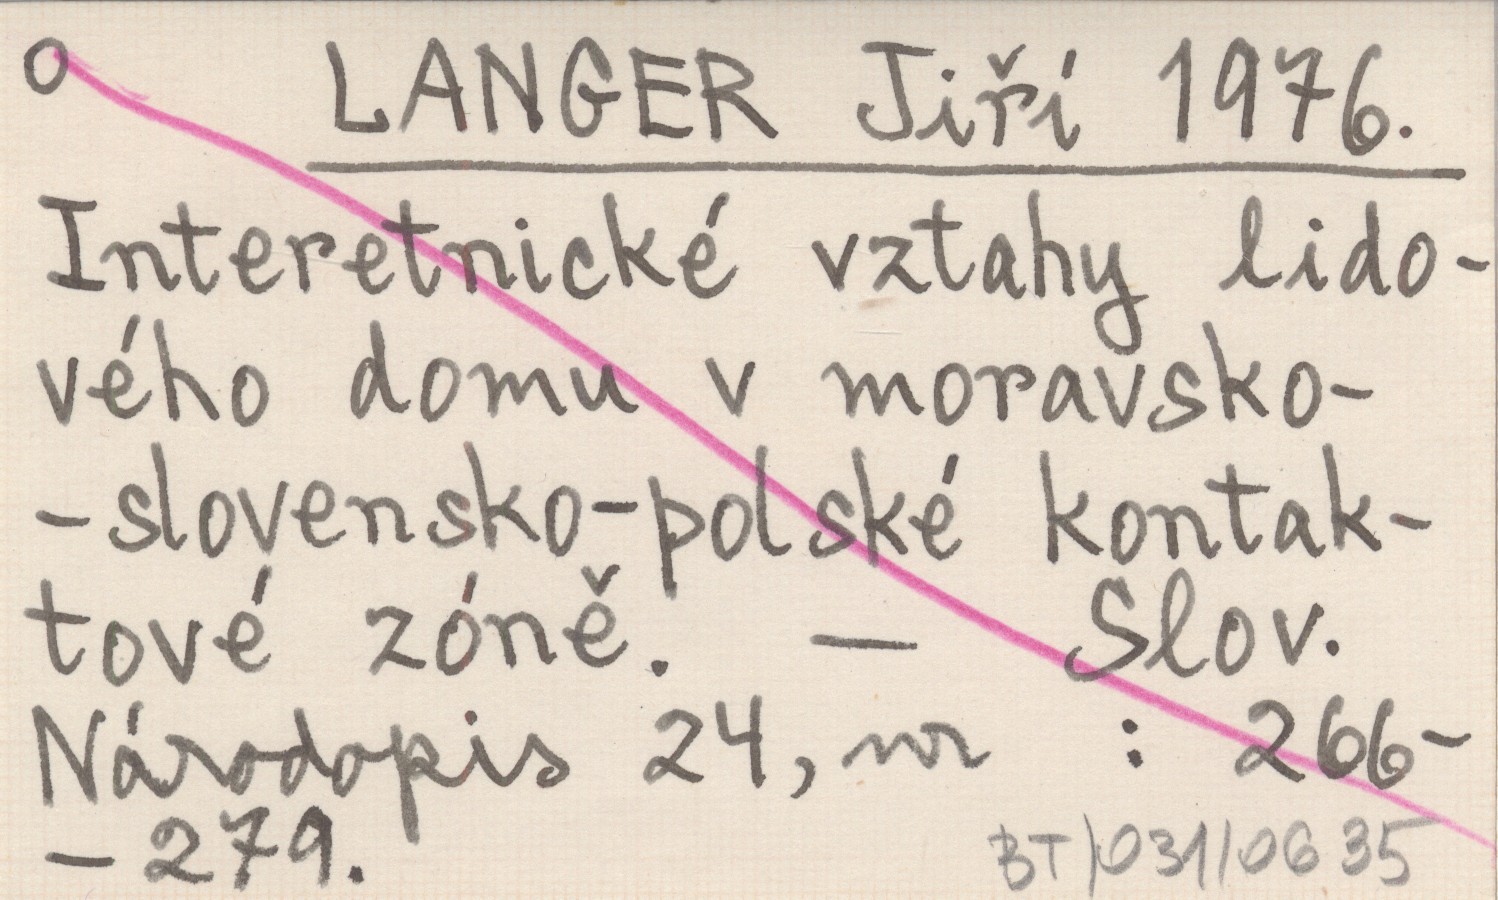 o LANGER Jiří 1976.
Interetnické vztahy lido-
vého domu v moravsko-
-slovensko-polské kontak-
tové zóně. — Slov.
Národopis 24, nr : 266-
-279.
BT/031/0635